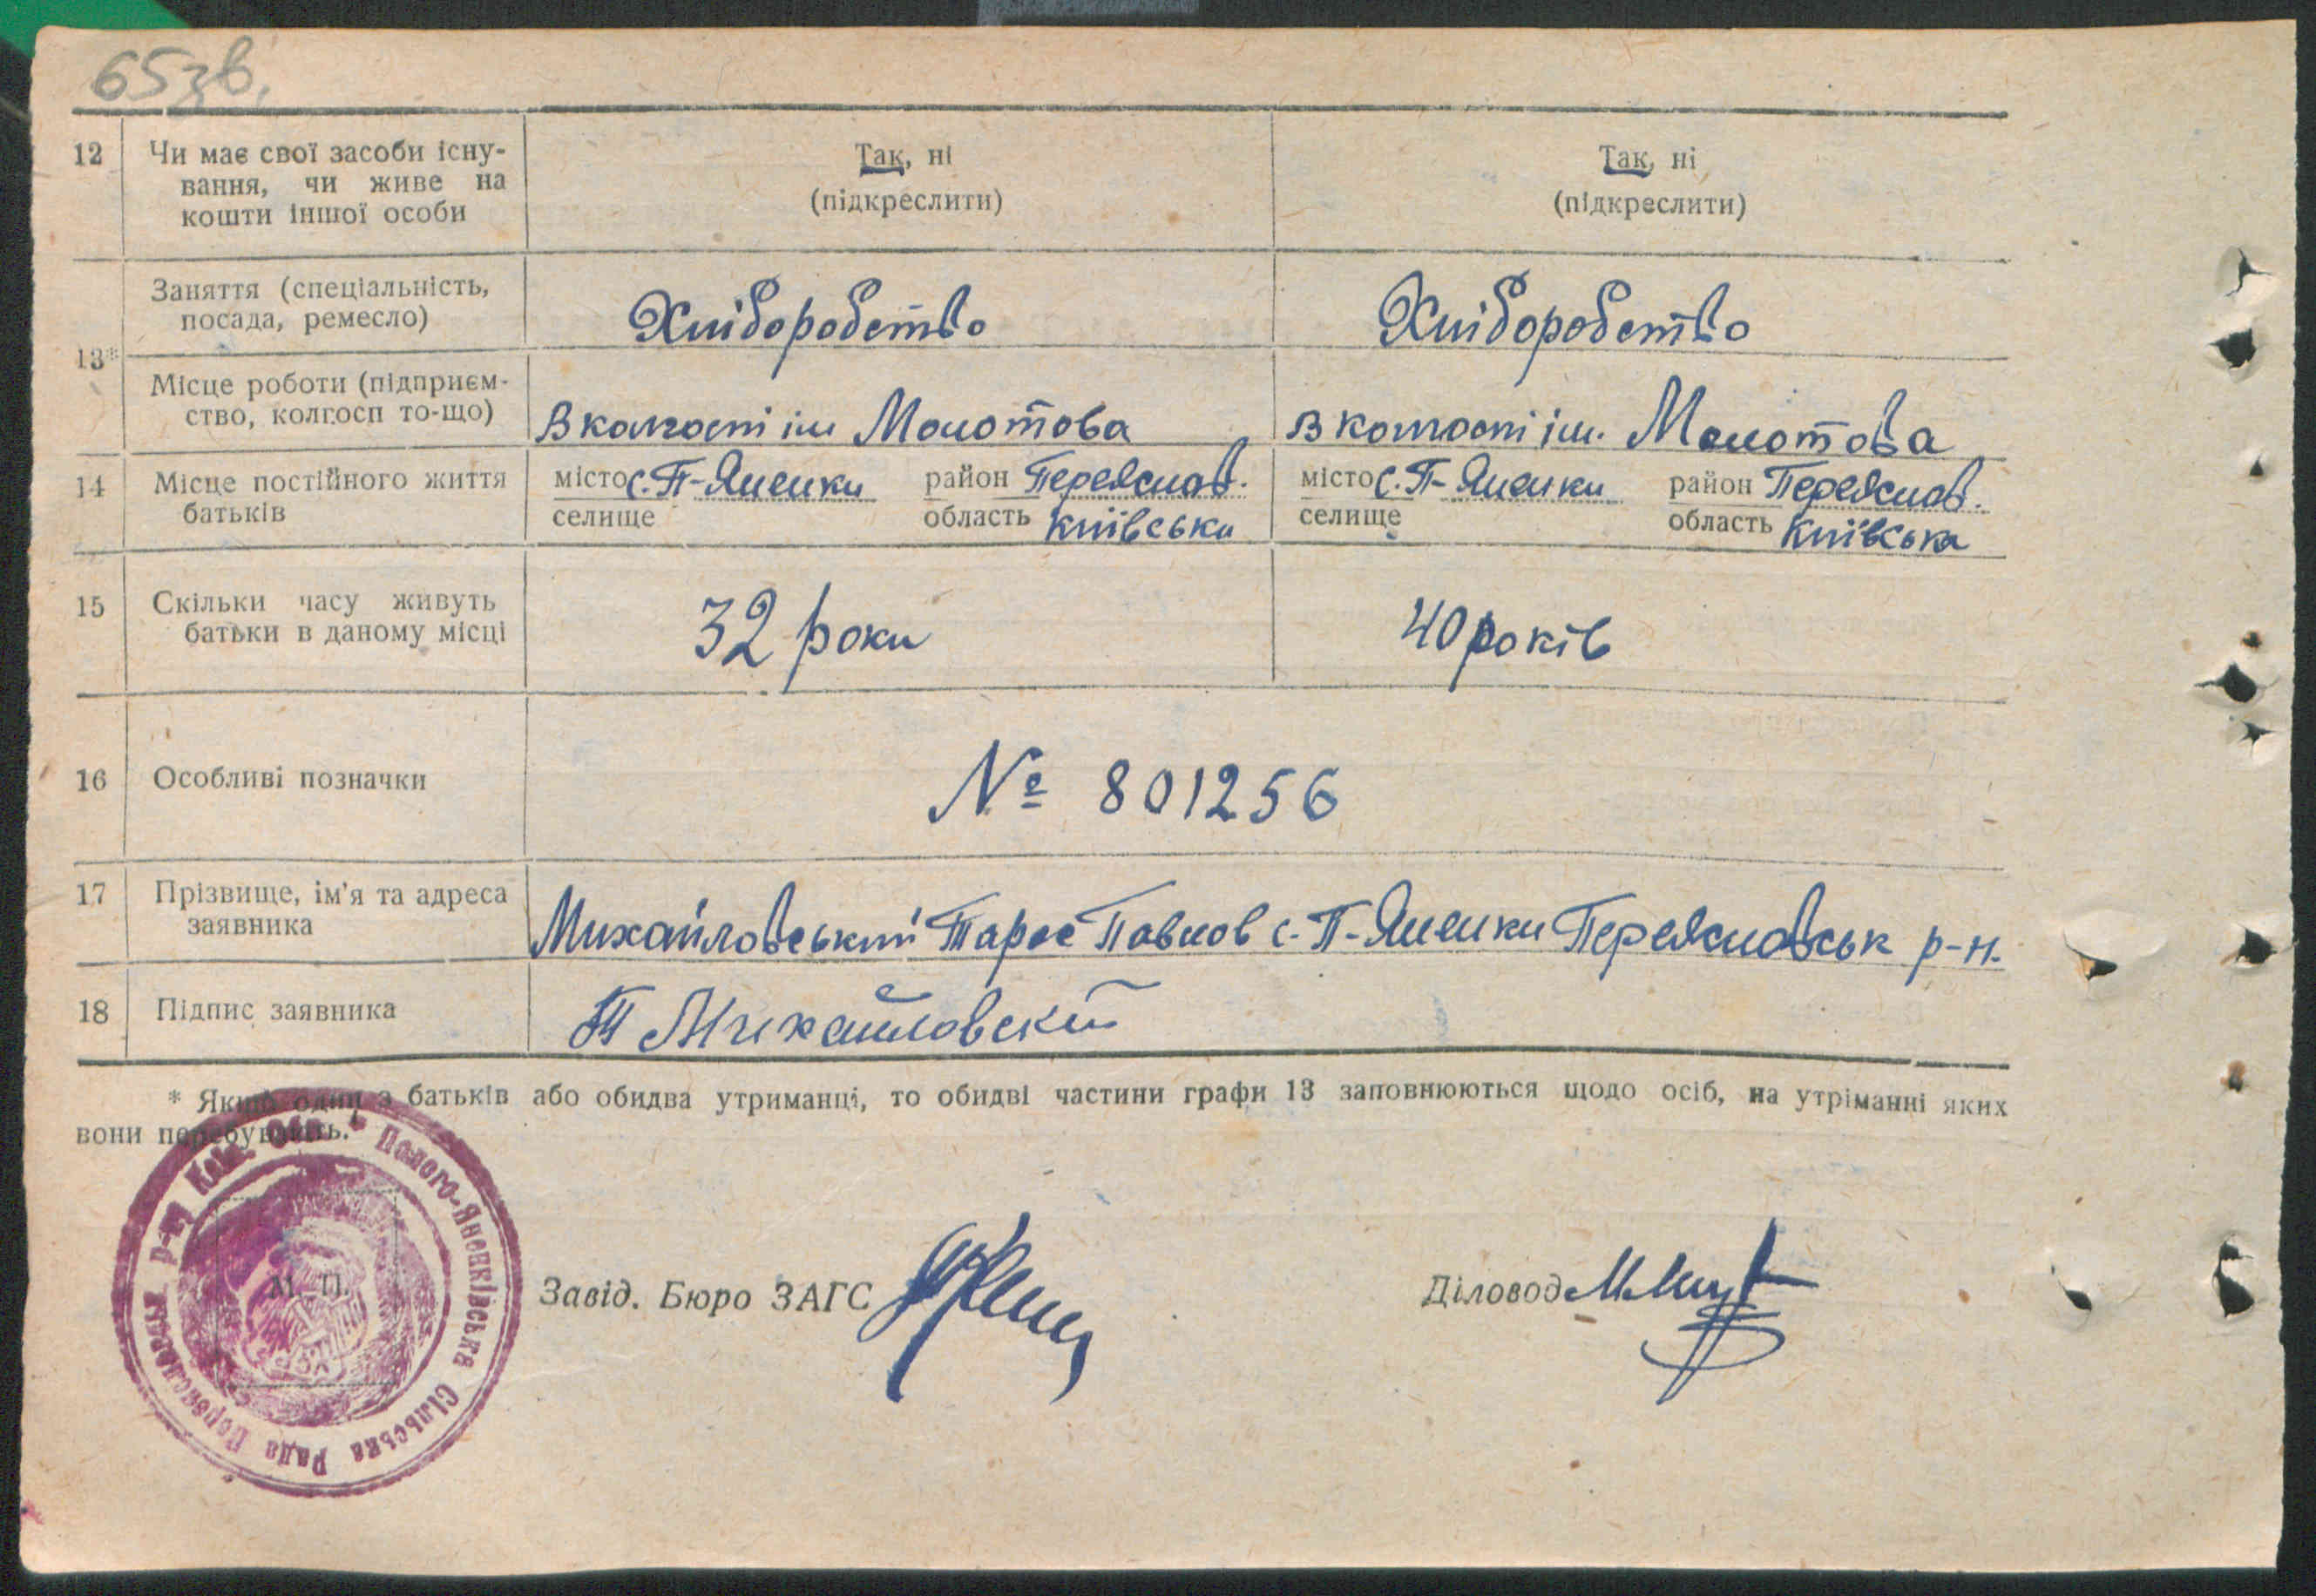 65зв.
12 Чи має свої засоби існу-
вання, чи живе на
кошти іншої особи
Так, ні
(підкреслити)
Так, ні
(підкреслити)
13*
Заняття (спеціальність,
посада, ремесло)
Хліборобство
Хліборобство
Місце роботи (підприєм-
ство, колгосп то-що)
В колгоспі ім Молотова
В колгоспі ім. Молотова
14 Місце постійного життя
батьків
місто с. П-Яненки район Переяслав.
селище область Київська
місто с. П-Яненки район Переяслав.
селище область Київська
15 Скільки часу живуть
батьки в даному місці
32 роки
40 років
16 Особливі позначки
№ 801256
17 Прізвище, ім'я та адреса
заявника
Михайловський Тарас Павлов с. П-Яненки Переяславськ р-н.
18 Підпис заявника
Т Михайловский
* Якщо один з батьків або обидва утриманці, то обидві частини графи 13 заповнюються щодо осіб, на утріманні яких
вони перебувають.
Полого-Яненківська Сільська Рада
р-н Київ.
М. П.
Завід. Бюро ЗАГС
Діловод